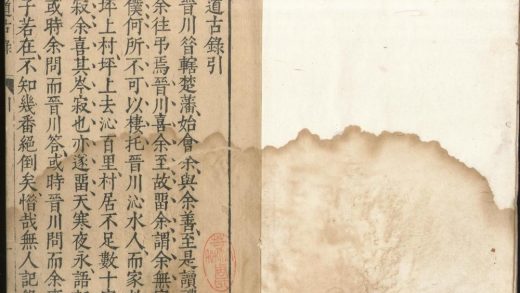 道古錄引
晉川轄楚藩始會余與余善至是讀禮
余往弔焉晉川喜余至故畱余謂余無
僕何所不可以棲托晉川沁水人而家
坪上村坪上去沁百里村居不足數十
寂余喜其岑寂也亦遂畱天寒夜永語
或時余問而晉川答或時晉川問而余
子若在不知幾番絕倒矣惜哉無人記
道古錄
引